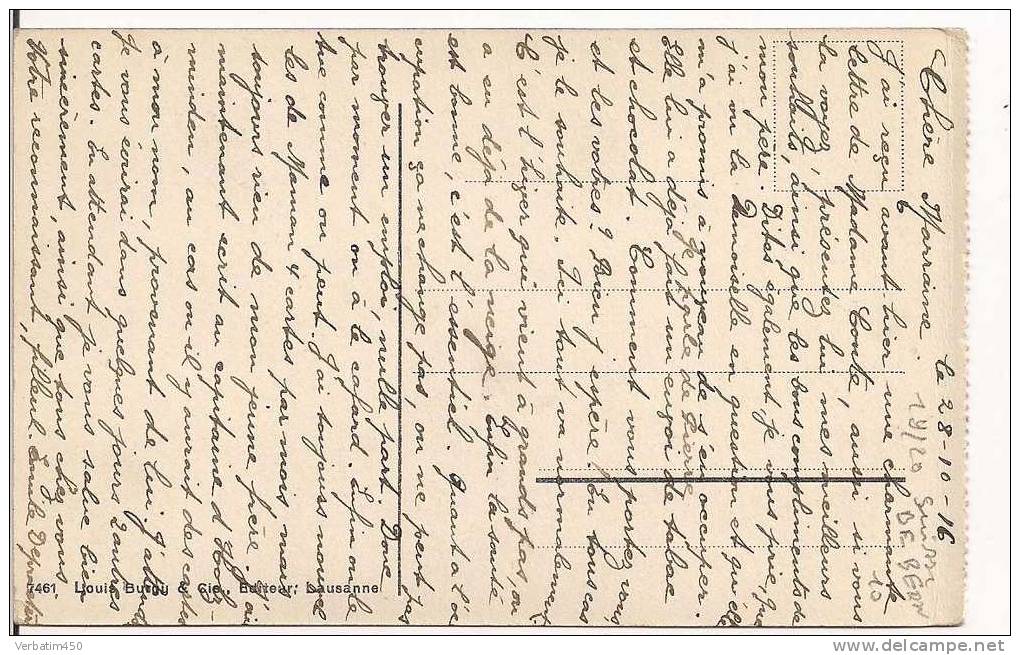 Chère Marraine le 28-10-16
J'ai reçu avant hier une charmante
lettre de Madame Conte, aussi si vous
la voyez, présentez lui mes meilleurs
souhaits, ainsi que les bons compliments de
mon père. Dites également je vous prie, que
j'ai vu la Demoiselle en question et qu'elle
m'a promis à nouveau de s'en occuper.
Elle lui a déja fait un envoi de tabac
et chocolat. Comment vous portez vous
et les vôtres? Bien j'espère! En tous cas
je le souhaite. Ici tout va normalement
C'est l'hiver qui vient à grands pas, on
a eu déja de la neige. Enfin la santé
est bonne, c'est l'essentiel. Quant à l'oc
cupation ça ne change pas, on ne peut pas
trouver un emploi, nulle part. Donc
par moment on à le cafard. Enfin on
tue comme on peut. J'ai toujours nouvel
les de Maman 4 cartes par mois mais
toujours rien de mon jeune frère. J'ai
maintenant ecrit au capitaine d'Holz-
minden, au cas où il y aurait des cartes
à mon nom, provenant de lui. J'attends
Je vous écrirai dans quelques jours d'autres
cartes. En attendant je vous salue bien
sincèrement, ainsi que tous chez vous
Votre reconnaissant filleul. Emile
Je parle de Pierre
19/20
10
7461 Louis Burgy & Cie., Editeur, Lausanne
Verbatim450
www.delcampe.net